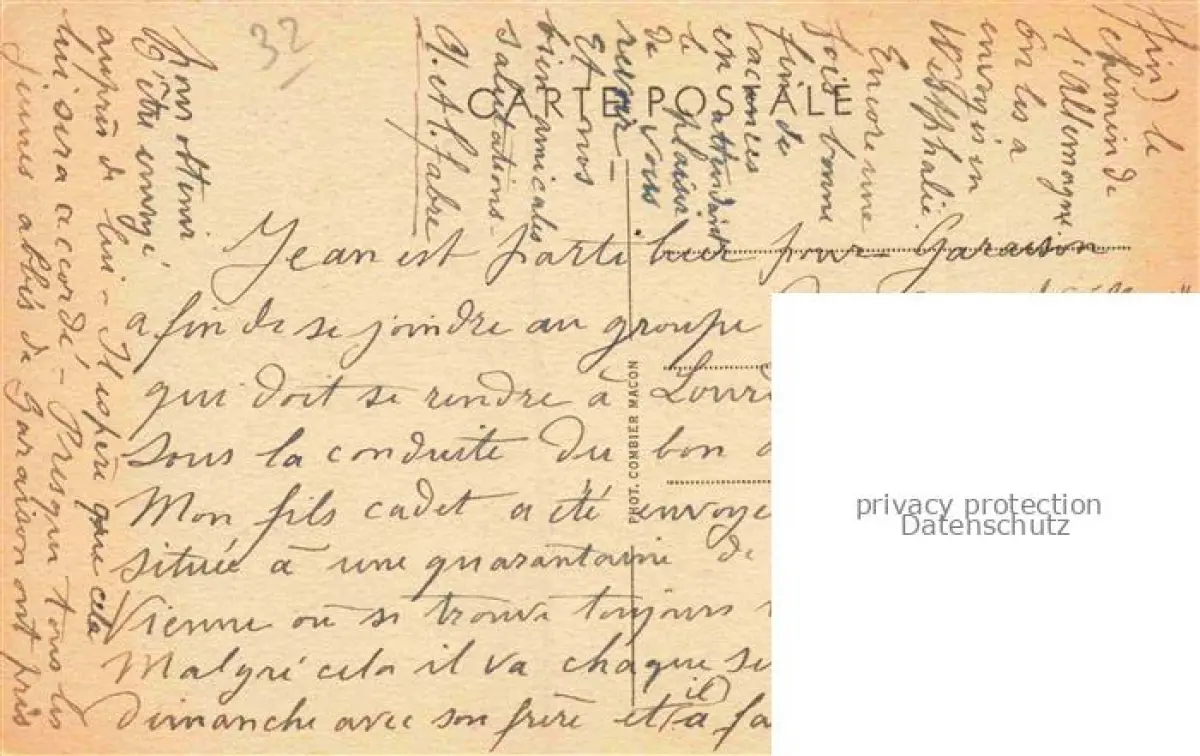 CARTE POSTALE
PHOT. COMBIER MACON
32
Jean est parti hier pour Garaison
afin de se joindre au groupe
qui doit se rendre à Lourd
sous la conduite du bon
Mon fils cadet a été envoyé
située à une quarantaine de
Vienne où se trouve toujours
Malgré cela il va chaque se
Dimanche avec son frère et il a fa
pour obtenir
d'être envoyé
auprès de lui - Il espère que cela
lui sera accordé - Presque tous les
jeunes abbés de Garaison ont pris
(fin) le
chemin de
l'Allemagne
on les a
envoyés en
Westphalie.
Encore une
fois bonne
fin de
vacances
en attendant
le plaisir
de vous
revoir -
Et nos
bien amicales
salutations -
A. et L. Fabre
privacy protection
Datenschutz